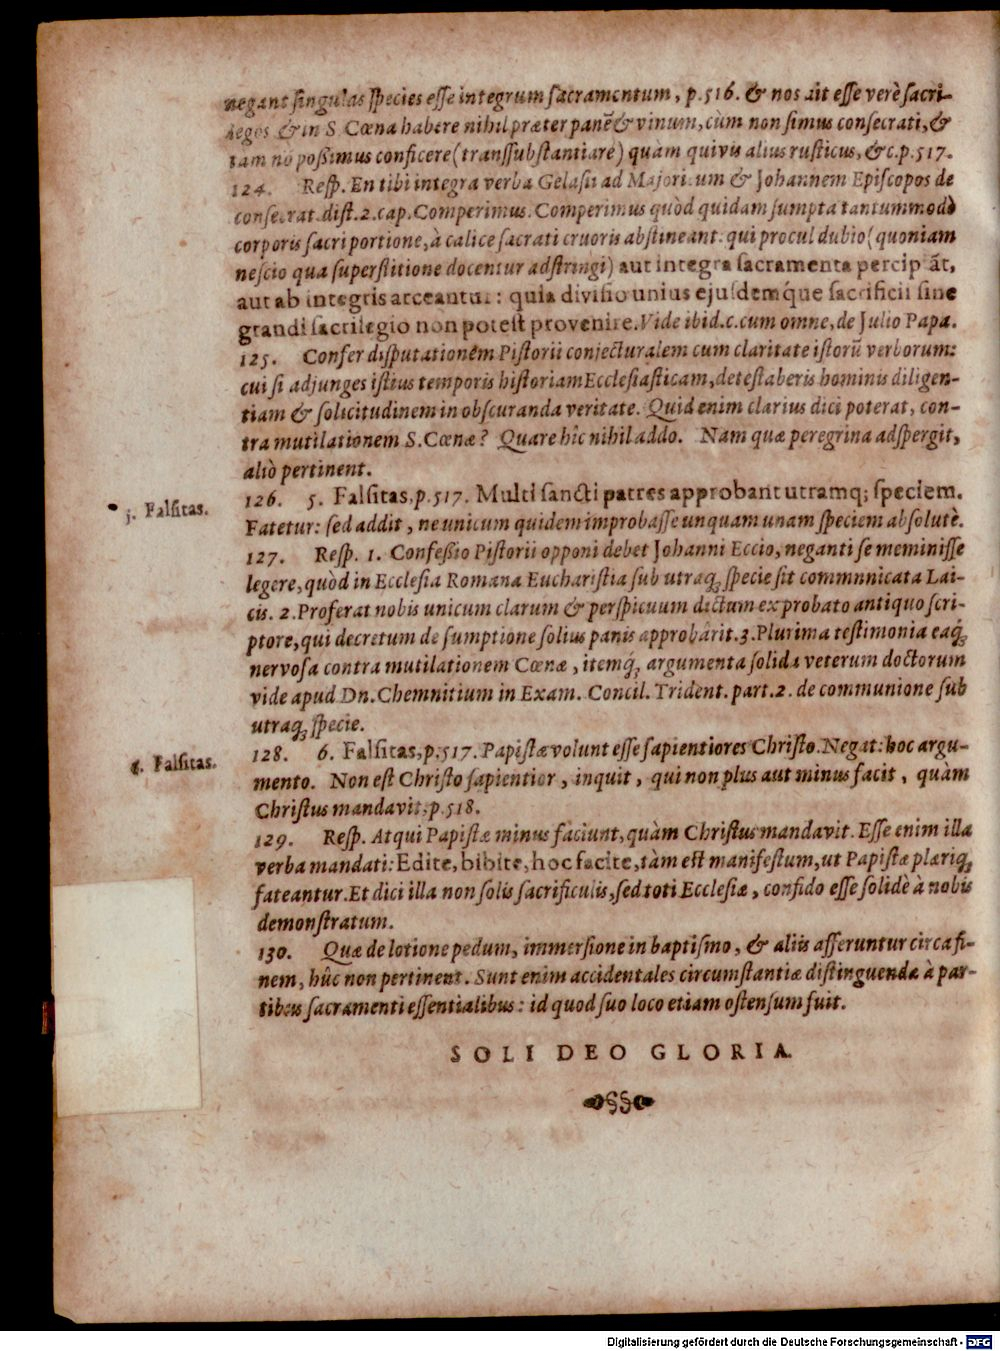 negant singulas species esse integrum sacramentum, p.516. & nos ait esse verè sacri-
legos & in S. Cœna habere nihil præter panē & vinum, cùm non simus consecrati, &
tam nō possimus conficere (transsubstantiare) quàm quivis alius rusticus, &c.p.517.
124. Resp. En tibi integra verba Gelasii ad Majoricum & Johannem Episcopos de
consecrat.dist.2.cap.Comperimus. Comperimus quòd quidam sumpta tantummodò
corporis sacri portione, à calice sacrati cruoris abstineant: qui procul dubio (quoniam
nescio qua superstitione docentur adstringi) aut integra sacramenta percipiāt,
aut ab integris arceantur: quia divisio unius ejusdemq́ue sacrificii sine
grandi sacrilegio non potest provenire. Vide ibid.c.cum omne, de Julio Papa.
125. Confer disputationem Pistorii conjecturalem cum claritate istorū verborum:
cui si adjunges istius temporis historiam Ecclesiasticam, detestaberis hominis diligen-
tiam & solicitudinem in obscuranda veritate. Quid enim clarius dici poterat, con-
tra mutilationem S. Cœnæ? Quare hîc nihil addo. Nam quæ peregrina adspergit,
aliò pertinent.
5. Falsitas.
126. 5. Falsitas, p.517. Multi sancti patres approbarit utramq; speciem.
Fatetur: sed addit, ne unicum quidem improbasse unquam unam speciem absolutè.
127. Resp. 1. Confessio Pistorii opponi debet Johanni Eccio, neganti se meminisse
legere, quòd in Ecclesia Romana Eucharistia sub utraq; specie sit commnnicata Lai-
cis. 2. Proferat nobis unicum clarum & perspicuum dictum ex probato antiquo scri-
ptore, qui decretum de sumptione solius panis approbârit. 3. Plurima testimonia eaq́;
nervosa contra mutilationem Cœnæ, itemq́; argumenta solida veterum doctorum
vide apud Dn. Chemnitium in Exam. Concil. Trident. part. 2. de communione sub
utraq; specie.
6. Falsitas.
128. 6. Falsitas, p.517. Papistæ volunt esse sapientiores Christo. Negat: hoc argu-
mento. Non est Christo sapientior, inquit, qui non plus aut minus facit, quàm
Christus mandavit: p.518.
129. Resp. Atqui Papistæ minus faciunt, quàm Christus mandavit. Esse enim illa
verba mandati: Edite, bibite, hoc facite, tàm est manifestum, ut Papistæ pleriq;
fateantur. Et dici illa non solis sacrificulis, sed toti Ecclesiæ, confido esse solidè à nobis
demonstratum.
130. Quæ de lotione pedum, immersione in baptismo, & aliis asseruntur circa fi-
nem, hûc non pertinent. Sunt enim accidentales circumstantiæ distinguendæ à par-
tibus sacramenti essentialibus: id quod suo loco etiam ostensum fuit.
SOLI DEO GLORIA.
Digitalisierung gefördert durch die Deutsche Forschungsgemeinschaft - DFG